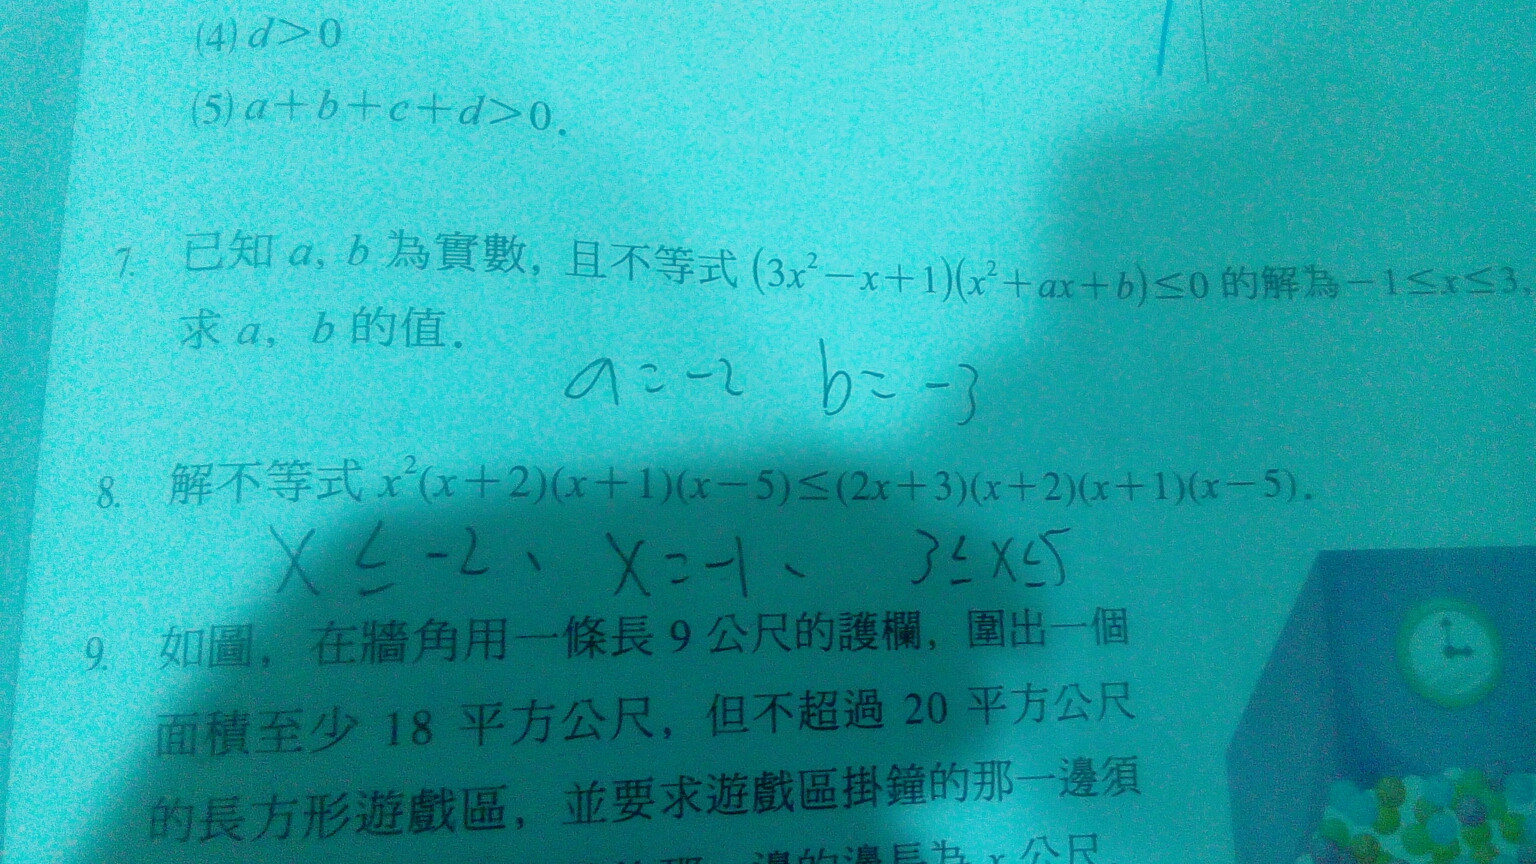 (4) d>0
(5) a+b+c+d>0.
7. 已知 a, b 為實數, 且不等式 (3x²−x+1)(x²+ax+b)≤0 的解為 −1≤x≤3,
求 a, b 的值.
a=-2 b=-3
8. 解不等式 x²(x+2)(x+1)(x−5)≤(2x+3)(x+2)(x+1)(x−5).
x≤-2、x=-1、3≤x≤5
9. 如圖, 在牆角用一條長 9 公尺的護欄, 圍出一個
面積至少 18 平方公尺, 但不超過 20 平方公尺
的長方形遊戲區, 並要求遊戲區掛鐘的那一邊須
那一邊的邊長為 x 公尺